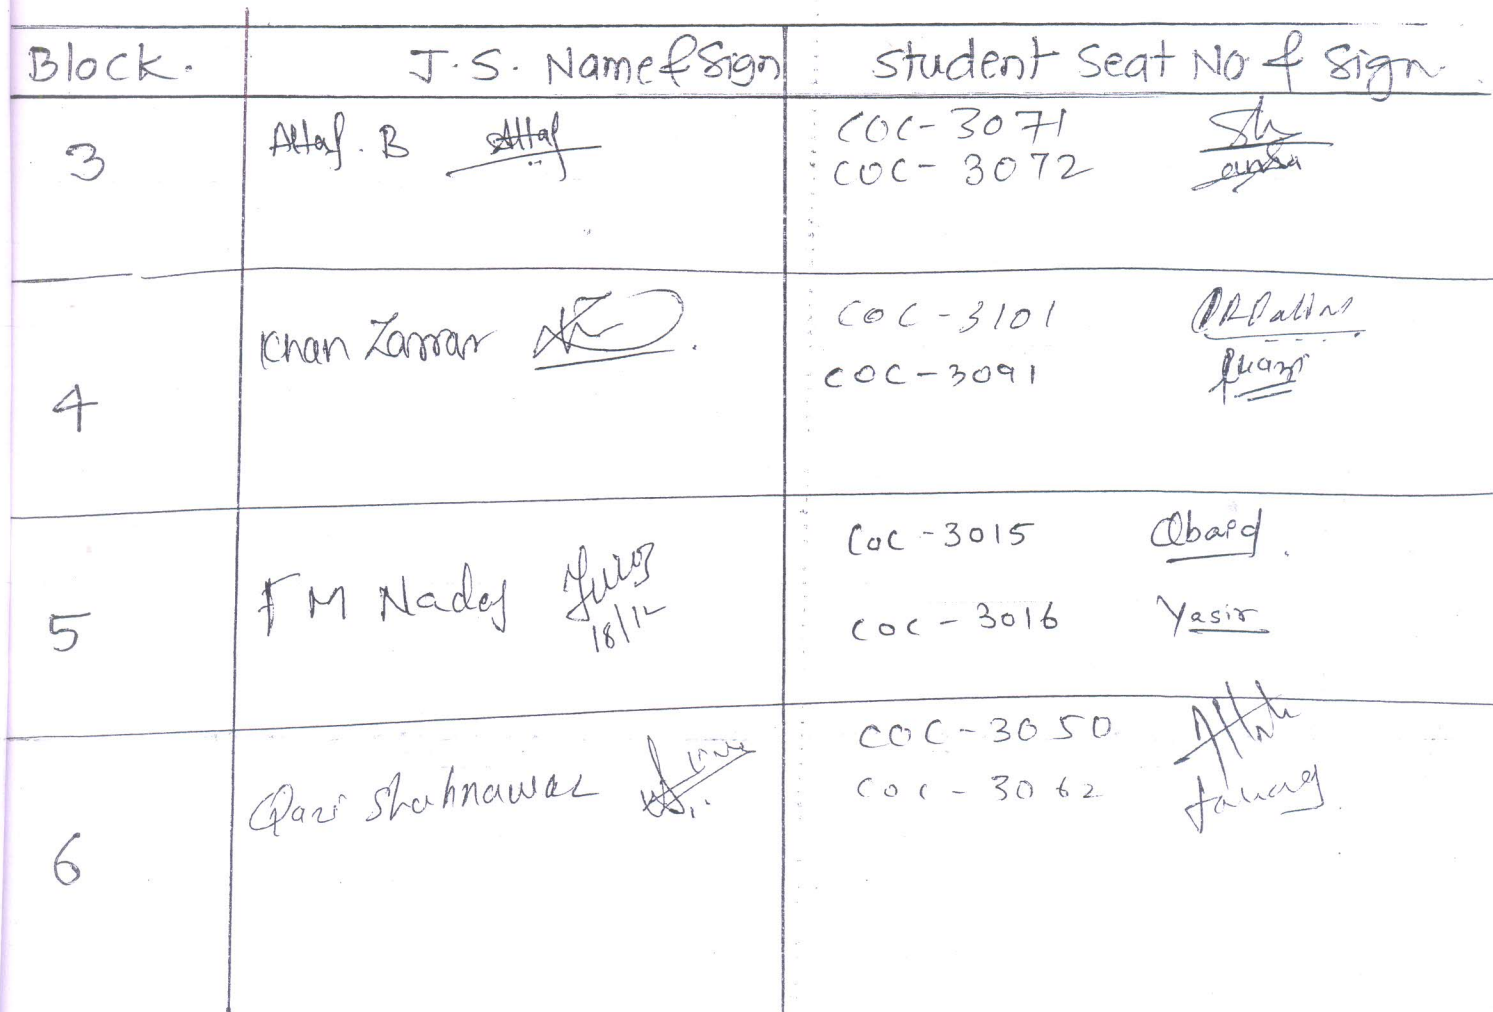 Block. J.S. Name & Sign Student Seat No & Sign.
3 Altaf. B Altaf COC-3071 Sh
COC-3072
4 Khan Zarrar COC-3101
COC-3091 Quazi
5 F M Nadaf 18/12 COC-3015 Obaid
COC-3016 Yasir
6 Qazi Shahnawaz COC-3050
COC-3062